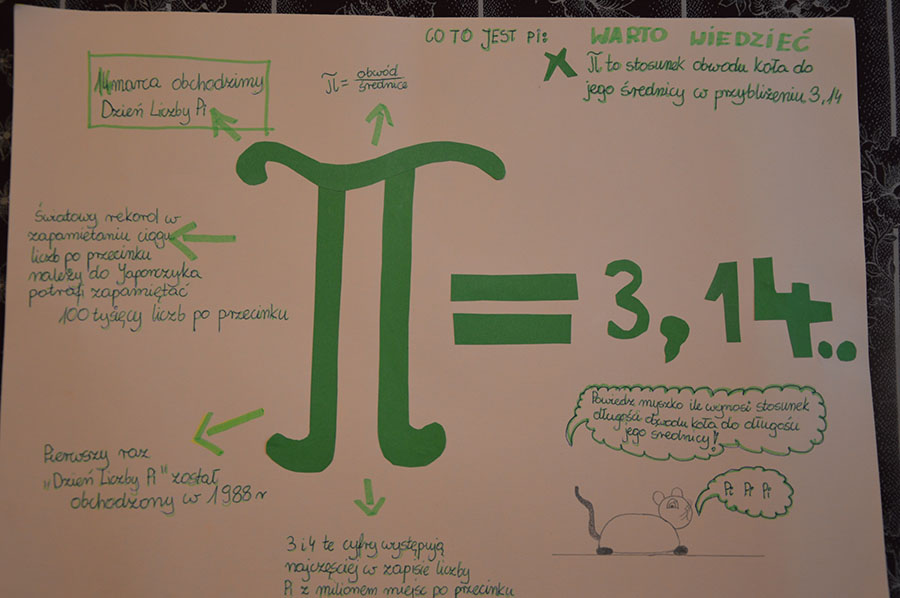 CO TO JEST PI:
WARTO WIEDZIEĆ
π to stosunek obwodu koła do
jego średnicy w przybliżeniu 3,14
14 marca obchodzimy
Dzień Liczby Pi
π = obwód
średnice
Światowy rekord w
zapamiętaniu ciągu
liczb po przecinku
należy do Japończyka
potrafi zapamiętać
100 tysięcy liczb po przecinku
π = 3,14..
Pierwszy raz
„Dzień Liczby Pi" został
obchodzony w 1988 r
3 i 4 te cyfry występują
najczęściej w zapisie liczby
Pi z milionem miejsc po przecinku
Powiedz myszko ile wynosi stosunek
długości obwodu koła do długości
jego średnicy!
Pi Pi Pi